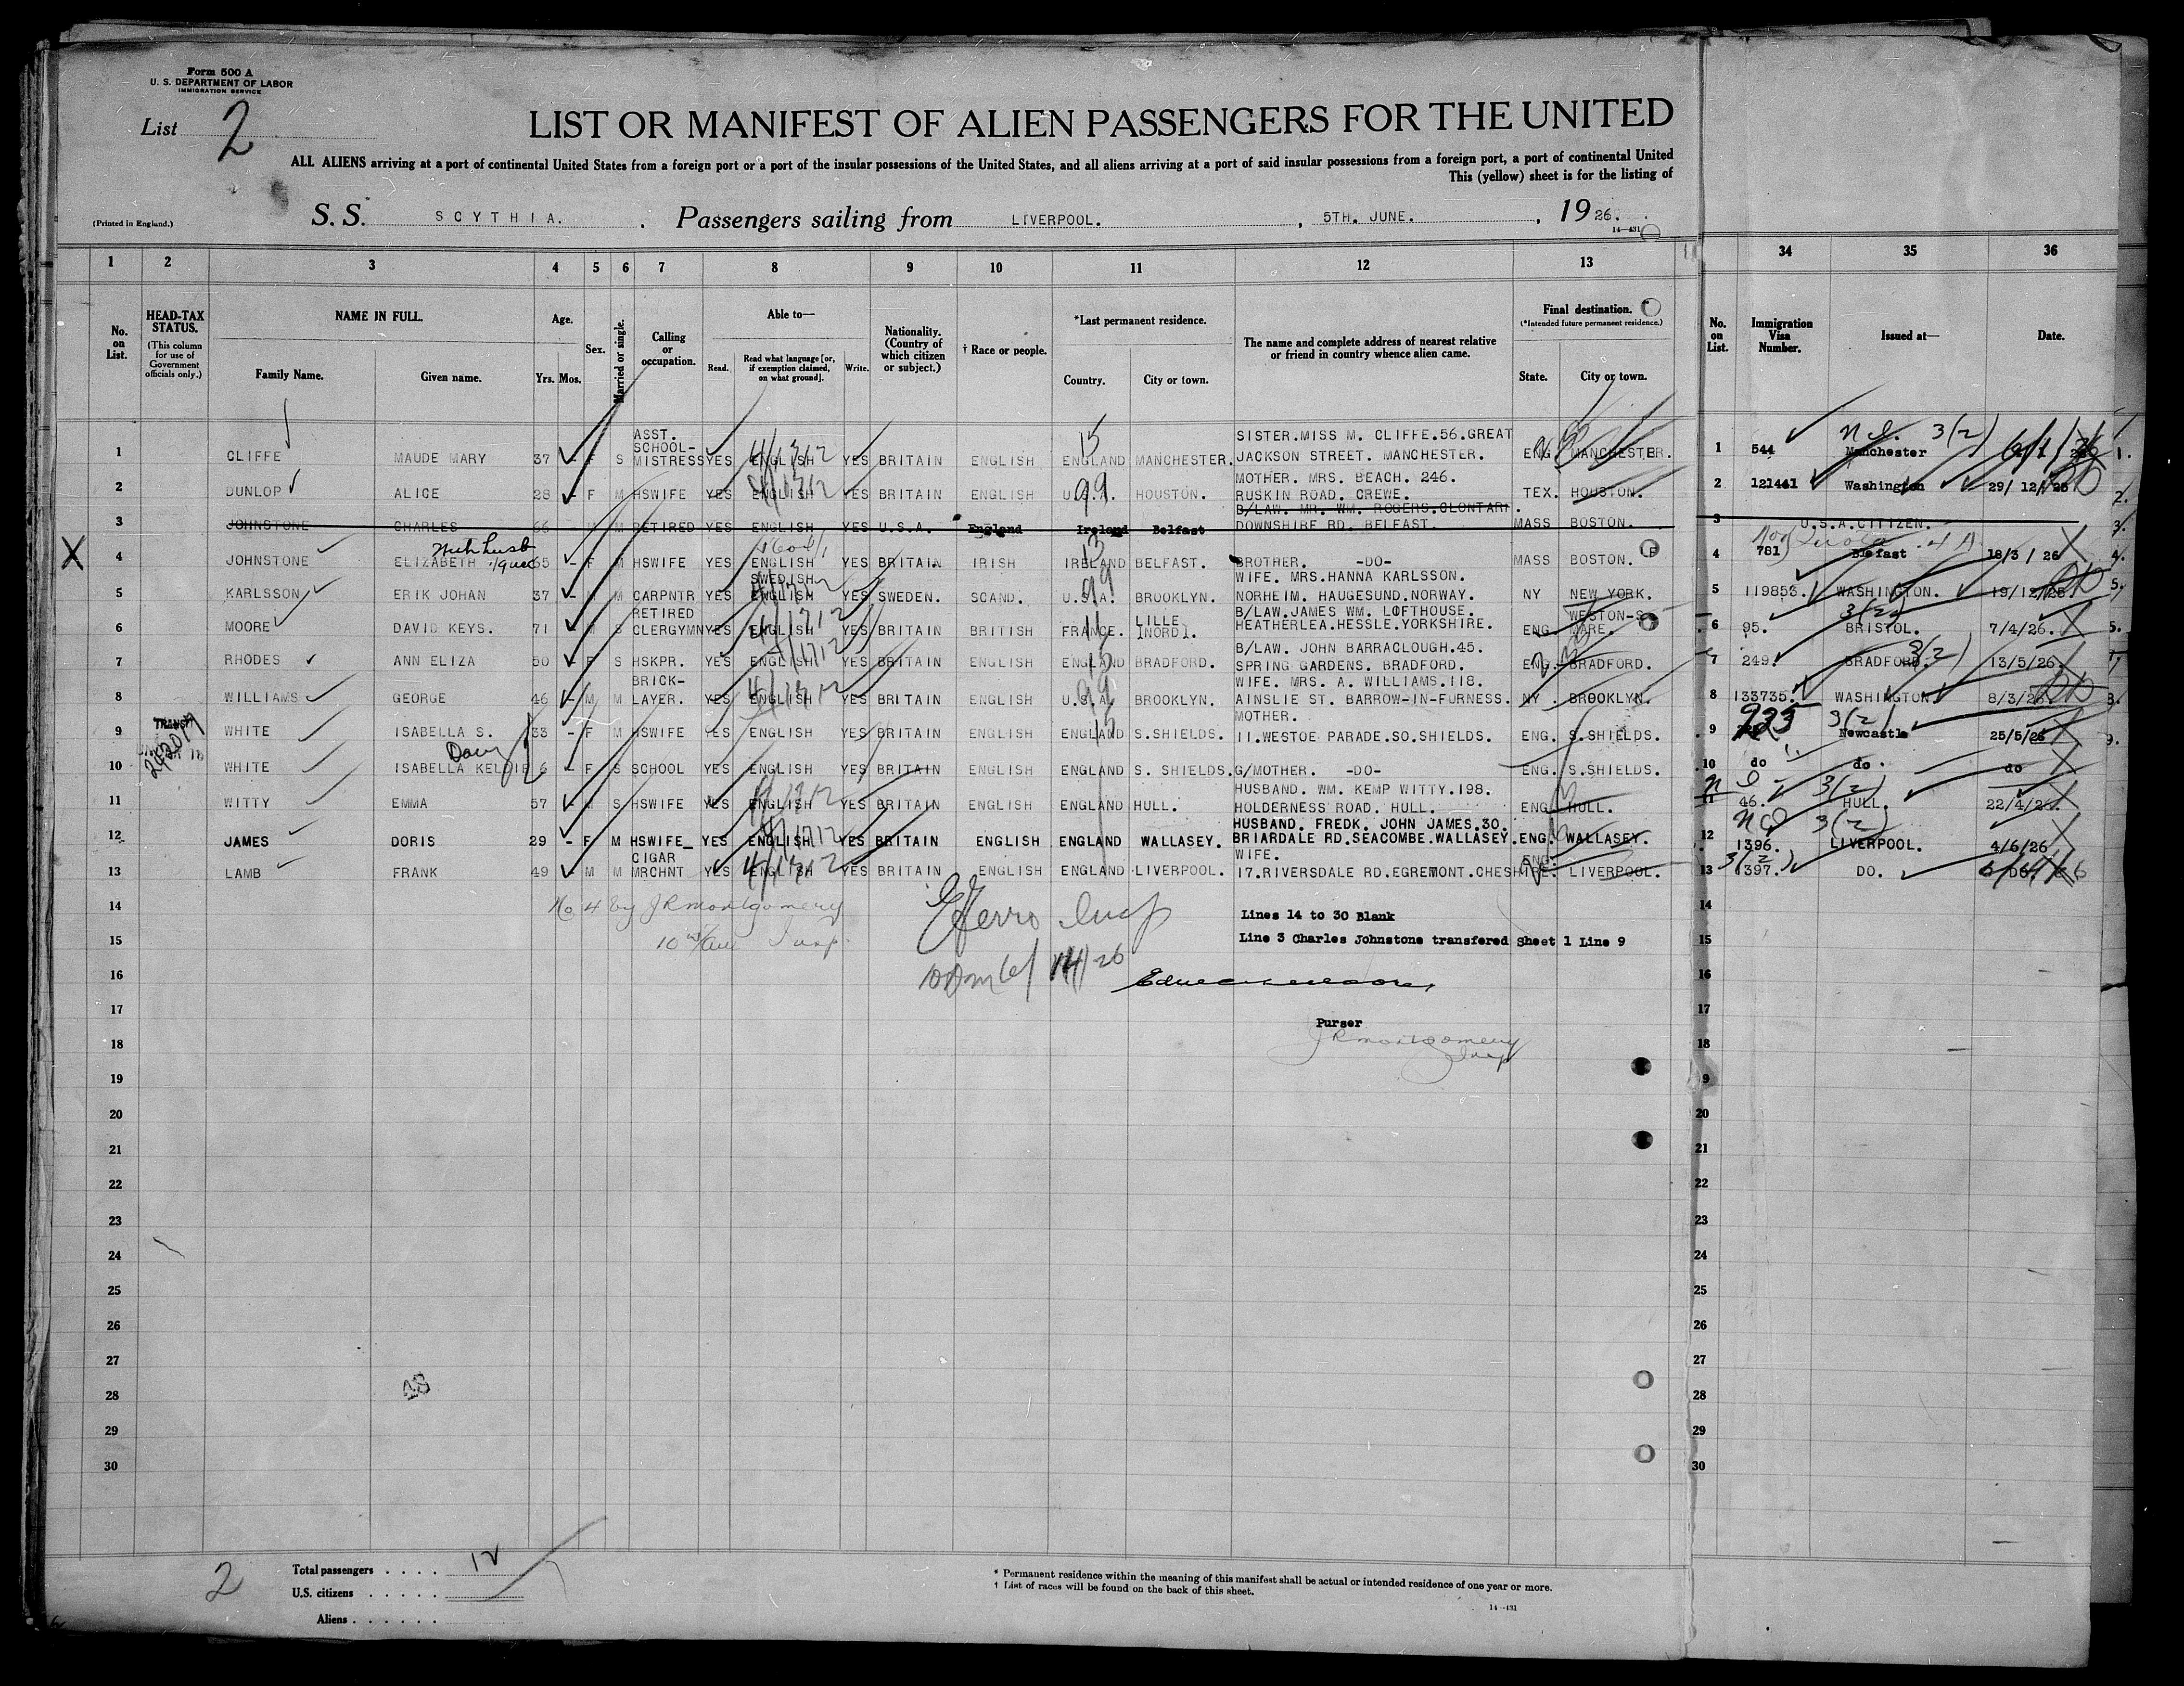 Form 500 A
U. S. DEPARTMENT OF LABOR
IMMIGRATION SERVICE
List 2
LIST OR MANIFEST OF ALIEN PASSENGERS FOR THE UNITED
ALL ALIENS arriving at a port of continental United States from a foreign port or a port of the insular possessions of the United States, and all aliens arriving at a port of said insular possessions from a foreign port, a port of continental United
This (yellow) sheet is for the listing of
(Printed in England.)
S. S. SCYTHIA. Passengers sailing from LIVERPOOL. , 5TH. JUNE. , 1926.
14-431
1 2 3 4 5 6 7 8 9 10 11 12 13 34 35 36
No. on List.
HEAD-TAX STATUS.
(This column for use of Government officials only.)
NAME IN FULL.
Family Name. Given name.
Age.
Yrs. Mos.
Sex.
Married or single.
Calling or occupation.
Able to—
Read. Read what language [or, if exemption claimed, on what ground]. Write.
Nationality. (Country of which citizen or subject.)
† Race or people.
*Last permanent residence.
Country. City or town.
The name and complete address of nearest relative or friend in country whence alien came.
Final destination.
(*Intended future permanent residence.)
State. City or town.
No. on List.
Immigration Visa Number.
Issued at—
Date.
1 CLIFFE MAUDE MARY 37 - F S ASST. SCHOOL-MISTRESS YES ENGLISH YES BRITAIN ENGLISH ENGLAND MANCHESTER. SISTER.MISS M. CLIFFE.56.GREAT JACKSON STREET. MANCHESTER. ENG. MANCHESTER. 1 544 Manchester
2 DUNLOP ALICE 28 - F M HSWIFE YES ENGLISH YES BRITAIN ENGLISH U.S.A. HOUSTON. MOTHER. MRS. BEACH. 246. RUSKIN ROAD. CREWE. TEX. HOUSTON. 2 121441 Washington 29/ 12/ 25
3 JOHNSTONE CHARLES 66 - M M RETIRED YES ENGLISH YES U.S.A. England Ireland Belfast B/LAW. MR. WM. ROGERS.CLONTARF. DOWNSHIRE RD. BELFAST. MASS BOSTON. 3 U.S.A.CITIZEN.
4 JOHNSTONE ELIZABETH 65 - F M HSWIFE YES ENGLISH YES BRITAIN IRISH IRELAND BELFAST. BROTHER. -DO- MASS BOSTON. 4 781 Belfast 18/3 / 26
5 KARLSSON ERIK JOHAN 37 - M M CARPNTR YES SWEDISH ENGLISH YES SWEDEN. SCAND. U.S.A. BROOKLYN. WIFE. MRS.HANNA KARLSSON. NORHEIM. HAUGESUND.NORWAY. NY NEW YORK. 5 119853. WASHINGTON. 19/12/25
6 MOORE DAVID KEYS. 71 - M S RETIRED CLERGYMN YES ENGLISH YES BRITAIN BRITISH FRANCE. LILLE [NORD]. B/LAW.JAMES WM. LOFTHOUSE. HEATHERLEA.HESSLE.YORKSHIRE. ENG. WESTON-S- MARE. 6 95. BRISTOL. 7/4/26.
7 RHODES ANN ELIZA 50 - F S HSKPR. YES ENGLISH YES BRITAIN ENGLISH ENGLAND BRADFORD. B/LAW. JOHN BARRACLOUGH.45. SPRING GARDENS. BRADFORD. ENG. BRADFORD. 7 249. BRADFORD. 13/5/26.
8 WILLIAMS GEORGE 46 - M M BRICK-LAYER. YES ENGLISH YES BRITAIN ENGLISH U.S.A. BROOKLYN. WIFE. MRS. A. WILLIAMS.118. AINSLIE ST. BARROW-IN-FURNESS. NY . BROOKLYN. 8 133735. WASHINGTON 8/3/26.
9 WHITE ISABELLA S. 33 - F M HSWIFE YES ENGLISH YES BRITAIN ENGLISH ENGLAND S.SHIELDS. MOTHER. 11.WESTOE PARADE.SO.SHIELDS. ENG. S.SHIELDS. 9 935 Newcastle 25/5/26
10 WHITE ISABELLA KELDIE 6 - F S SCHOOL YES ENGLISH YES BRITAIN ENGLISH ENGLAND S. SHIELDS. G/MOTHER. -DO- ENG. S.SHIELDS. 10 do do. do
11 WITTY EMMA 57 S HSWIFE YES ENGLISH YES BRITAIN ENGLISH ENGLAND HULL. HUSBAND. WM. KEMP WITTY.198. HOLDERNESS ROAD. HULL. ENG. HULL. 11 46. HULL. 22/4/26.
12 JAMES DORIS 29 - F M HSWIFE YES ENGLISH YES BRITAIN ENGLISH ENGLAND WALLASEY. HUSBAND. FREDK. JOHN JAMES.30. BRIARDALE RD.SEACOMBE.WALLASEY. ENG. WALLASEY. 12 1396. LIVERPOOL. 4/6/26
13 LAMB FRANK 49 - M M CIGAR MRCHNT YES ENGLISH YES BRITAIN ENGLISH ENGLAND LIVERPOOL. WIFE. 17.RIVERSDALE RD.EGREMONT.CHESHIRE. ENG. LIVERPOOL. 13 1397. DO. DO.
14 No 4 by JR Montgomery Lines 14 to 30 Blank 14
15 Insp. Line 3 Charles Johnstone transfered Sheet 1 Line 9 15
16 16
17 Purser 17
18 JR Montgomery Insp 18
19 9
20 20
21 21
22 22
23 23
24 24
25 25
26 26
27 27
28 28
29 29
30 30
2
Total passengers . . . . 12
U.S. citizens . . . . .
Aliens . . . . . .
* Permanent residence within the meaning of this manifest shall be actual or intended residence of one year or more.
† List of races will be found on the back of this sheet.
14-431